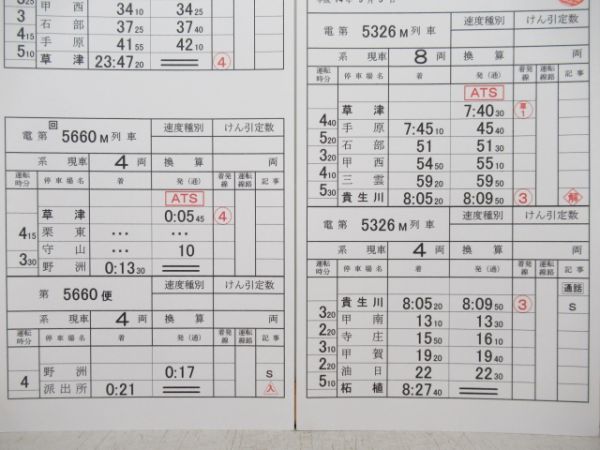 3 25 甲西 34 10 34 25
3 石部 37 25 37 40
4 15 手原 41 55 42 10
草津 23:47 20 ④
回
電 第 5660 M 列車 速度種別 けん引定数
系 現車 4 両 換算
運転時分 停車場名 着 発(通) 着発線 運転線路 記事
ATS
草津 0:05 45 ④
4 15 栗東 … …
守山 … 10
3 30 野洲 0:13 30
第 5660 便 速度種別 けん引定数
系 現車 4 両 換算
運転時分 停車場名 着 発(通) 着発線 運転線路 記事
野洲 0:17 S
4 派出所 0:21 入
電 第 5326 M 列車 速度種別 けん引定数
系 現車 8 両 換算
運転時分 停車場名 着 発(通) 着発線 運転線路 記事
ATS
草津 7:40 30 草1
4 40 手原 7:45 10 45 40
5 20 石部 51 51 30
3 20 甲西 54 50 55 10
4 40 三雲 59 20 59 50
5 30 貴生川 8:05 20 8:09 50 ③ 解
電 第 5326 M 列車 速度種別 けん引定数
系 現車 4 両 換算
運転時分 停車場名 着 発(通) 着発線 運転線路 記事
通話
貴生川 8:05 20 8:09 50 ③ S
3 20 甲南 13 10 13 30
2 20 寺庄 15 50 16 10
3 10 甲賀 19 20 19 40
2 40 油日 22 20 22 30
5 10 柘植 8:27 40